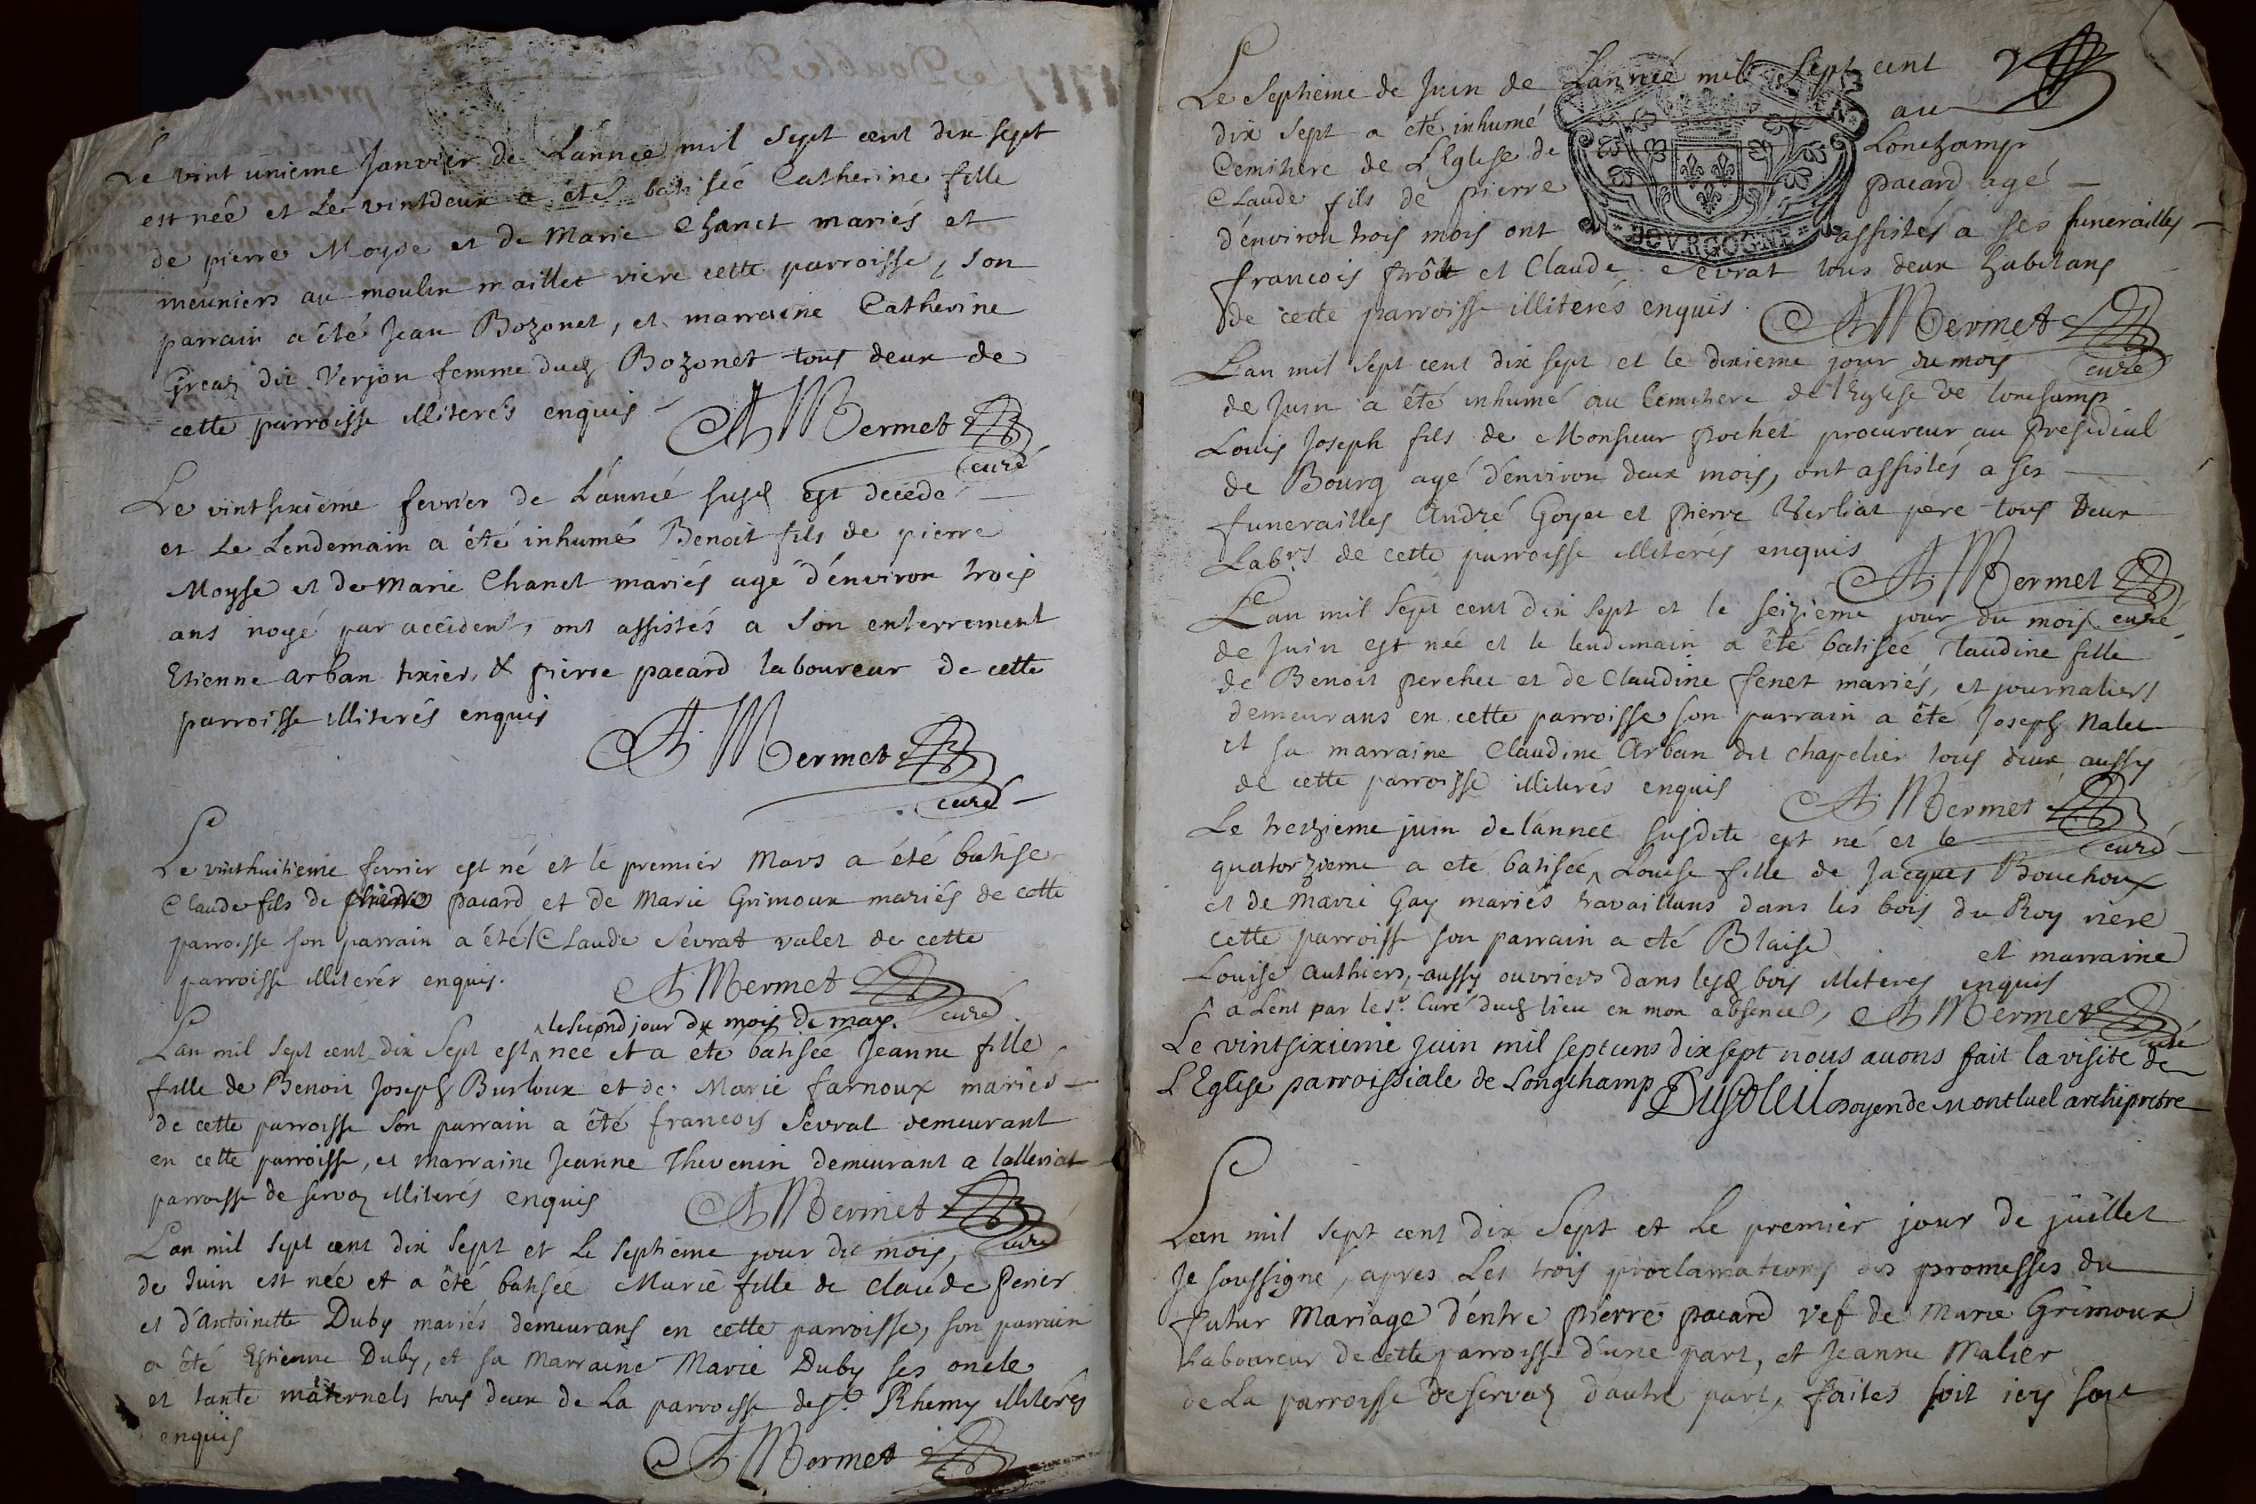 Le vint unieme Janvier de L'année mil sept cent dix sept
est née et Le vintdeux a été batisée Catherine fille
de pierre Moyse et de Marie Chanet mariés et
meuniers au moulin maillet riere cette parroisse, son
parrain a été Jean Bozonet, et marraine Catherine
Greaz dit Verjon femme dud Bozonet tous deux de
cette parroisse illiterés enquis
Mermet
curé
Le vintsixieme fevrier de L'année susd est decedé
et Le Lendemain a été inhumé Benoit fils de pierre
Moyse et de Marie Chanet mariés agé d'environ trois
ans noyé par accident, ont assistés a son enterrement
Etienne arban tixier, & pierre pacard laboureur de cette
parroisse illiterés enquis
Mermet
curé
Le vinthuitieme fevrier est né et le premier Mars a été batisé
Claude fils de pierre pacard et de Marie Grimoux mariés de cette
parroisse son parrain a été Claude Sevrat valet de cette
parroisse illiterér enquis.
Mermet
curé
le second jour du mois de may.
Lan mil sept cent dix Sept est née et a été batisée Jeanne fille
fille de Benoit Joseph Burloux et de Marie farnoux mariés
de cette parroisse son parrain a été francois Sevrat demeurant
en cette parroisse, et marraine Jeanne Thevenin demeurant a lalleriat
parroisse de servaz illiterés enquis
Mermet
curé
L'an mil sept cent dix sept et Le septieme jour du mois,
de Juin est née et a été batisée Marie fille de Claude Perier
et d'Antoinette Duby mariés demeurans en cette parroisse, son parrain
a été Estienne Duby, et sa Marraine Marie Duby ses oncle
et tante maternels tous deux de La parroisse de St. Rhemy illiterés
enquis
Mermet
Le Septieme de Juin de L'année mil Sept cent
dix sept a été inhumé au
Cemitiere de L'Eglise de Lonchamp
Claude fils de pierre pacard agé
d'environ trois mois ont assistés a ses funerailles
BOVRGOGNE
francois frôit et Claude Sevrat tous deux habitans
de cette parroisse illiterés enquis
Mermet
curé
Lan mil sept cent dix sept et le dixieme jour du mois
de Juin a été inhumé au Cemitiere de l'Eglise de lonchamp
Louis Joseph fils de Monsieur Pochet procureur au Presidial
de Bourg agé d'environ deux mois, ont assistés a ses
funerailles André Goyet et Pierre Verliat pere tous deux
Labrs de cette parroisse illiterés enquis
Mermet
curé
Lan mil sept cent dix sept et le seizieme jour du mois
de Juin est née et le lendemain a été batisée Claudine fille
de Benoit perchet et de Claudine fenet mariés, et journaliers
demeurans en cette parroisse son parrain a été Joseph Nalet
et sa marraine Claudine Arban dit chapelier tous deux aussy
de cette parroisse illiterés enquis
Mermet
curé
Le treizieme juin de L'année susdite est né et le
quatorzieme a eté batisée ^ Louise fille de Jacques Bouchoux
et de Marie Gay mariés travaillans dans les bois du Roy riere
cette parroisse son parrain a eté Blaise et marraine
Louise Authiers, aussy ouvriers dans lesd bois illiteres enquis
^ a Lent par le Sr. Curé dud lieu en mon absence,
Mermet
curé
Le vintsixieme Juin mil sept cens dix sept nous avons fait la visite de
L'Eglise parroissiale de Longchamp Dusoleil Doyen de Montluel archiprêtre
Lan mil sept cent dix Sept et Le premier jour de juillet
Je soussigné, apres Les trois proclamations des promesses du
futur Mariage d'entre pierre pacard vef de Marie Grimoux
Laboureur de cette parroisse d'une part, et Jeanne Malier
de La parroisse de servaz d'autre part, faites soit icy soit